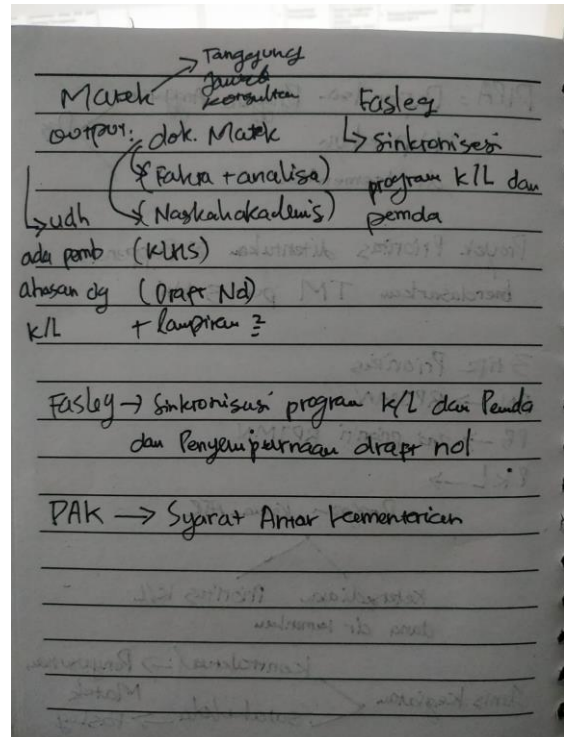 Tanggung
jawab
Konsultan
Matek
output: dok. Matek
(Fakta + analisa)
(Naskah akademis)
↳ udh
ada pemb
ahasan dg
K/L
(KLHS)
(Draft Nd)
+ lampiran 2
Fasleg
↳ Sinkronisasi
program K/L dan
pemda
Fasleg → Sinkronisasi program K/L dan Pemda
dan Penyempurnaan draft nol
PAK → Syarat Antar Kementerian